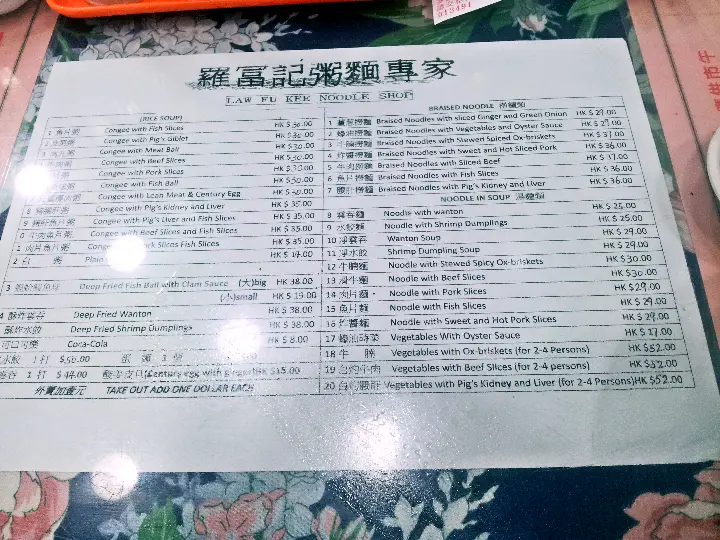 羅富記粥麵專家
LAW FU KEE NOODLE SHOP
(RICE SOUP)
1 魚片粥 Congee with Fish Slices HK $ 30.00
Congee with Pig's Giblet HK $30
Congee with Meat Ball HK $30.00
Congee with Beef Slices HK $ 30.00
Congee with Pork Slices HK $ 30.00
Congee with Fish Ball HK $ 30.00
Congee with Lean Meat & Century Egg HK $ 30.00
8 Congee with Pig's Kidney and Liver HK $ 35.00
9 Congee with Pig's Liver and Fish Slices HK $ 35.00
牛肉魚片粥 Congee with Beef Slices and Fish Slices HK $ 35.00
肉片魚片粥 Congee with Pork Slices Fish Slices HK $ 35.00
2 白 粥 Plain HK $ 14.00
3 Deep Fried Fish Ball with Clam Sauce (大)big HK $ 38.00
(小)small HK $ 19.00
4 酥炸雲吞 Deep Fried Wanton HK $ 38.00
酥炸水餃 Deep Fried Shrimp Dumplings HK $ 38.00
可口可樂 Coca-Cola HK $ 8.00
水餃 1 打 $58.00
1 打 $ 44.00 酸姜皮旦(Century egg with ginger)HK $15.00
外賣加壹元 TAKE OUT ADD ONE DOLLAR EACH
BRAISED NOODLE 撈麵類
1 薑葱撈麵 Braised Noodles with sliced Ginger and Green Onion HK $ 29.00
2 蠔油撈麵 Braised Noodles with Vegetables and Oyster Sauce HK $ 29.00
3 牛腩撈麵 Braised Noodles with Stewed Spiced Ox-briskets HK $ 37.00
4 炸醬撈麵 Braised Noodles with Sweet and Hot Sliced Pork HK $ 36.00
5 牛肉撈麵 Braised Noodles with Sliced Beef HK $ 37.00
6 魚片撈麵 Braised Noodles with Fish Slices HK $ 36.00
7 膶肝撈麵 Braised Noodles with Pig's Kidney and Liver HK $ 36.00
NOODLE IN SOUP 湯麵類
8 雲吞麵 Noodle with wanton HK $ 25.00
9 水餃麵 Noodle with Shrimp Dumplings HK $ 25.00
10 淨雲吞 Wanton Soup HK $ 29.00
11 淨水餃 Shrimp Dumpling Soup HK $ 29.00
12 牛腩麵 Noodle with Stewed Spicy Ox-briskets HK $30.00
13 滑牛麵 Noodle with Beef Slices HK $30.00
14 肉片麵 Noodle with Pork Slices HK $ 29.00
15 魚片麵 Noodle with Fish Slices HK $ 29.00
16 炸醬麵 Noodle with Sweet and Hot Pork Slices HK $ 29.00
17 蠔油時菜 Vegetables With Oyster Sauce HK $ 17.00
18 牛 腩 Vegetables with Ox-briskets (for 2-4 Persons) HK $52.00
19 白灼牛肉 Vegetables with Beef Slices (for 2-4 persons) HK $52.00
20 白灼膶肝 Vegetables with Pig's Kidney and Liver (for 2-4 Persons)HK $52.00